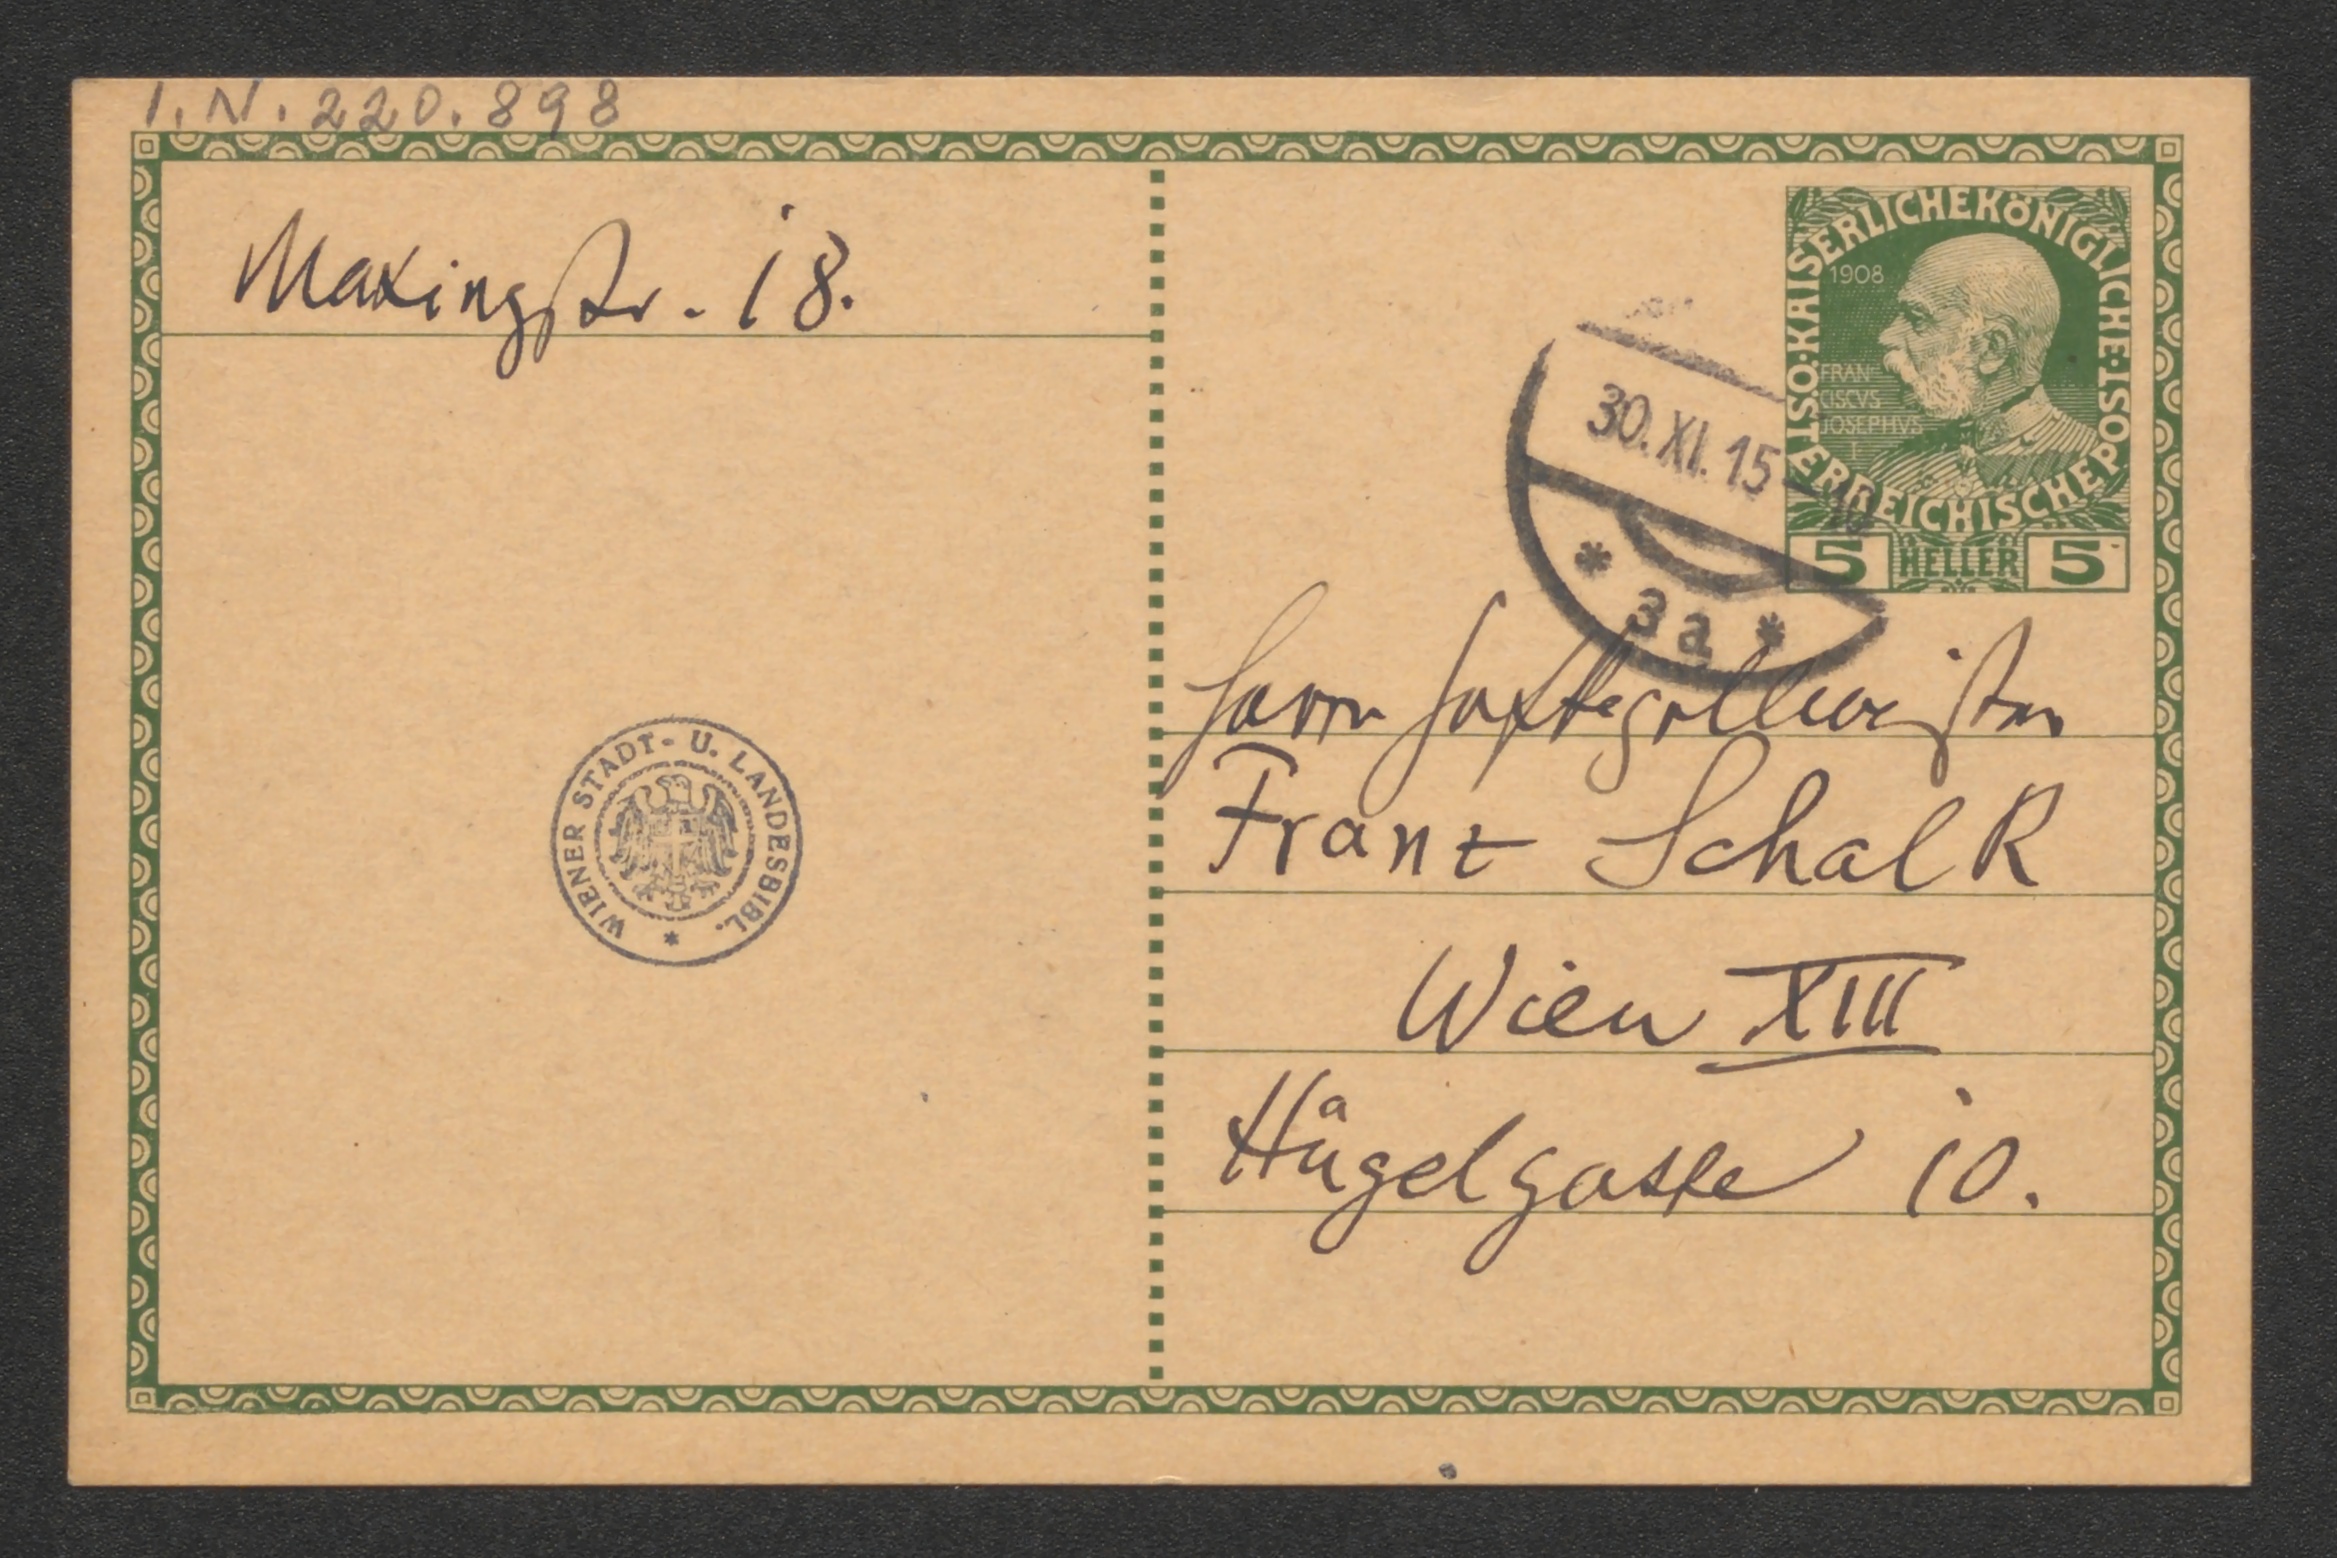 I.N. 220.898
Maxingstr. 18.
KAISERLICHE KÖNIGLICHE
1908
FRAN
CISCVS
JOSEPHVS
I
ÖSTERREICHISCHE POST
5 HELLER 5
30.XI.15
* 3a *
Herrn Hofkapellmeister
Franz Schalk
Wien XIII
Hügelgasse 10.
WIENER STADT- U. LANDESBIBL. *